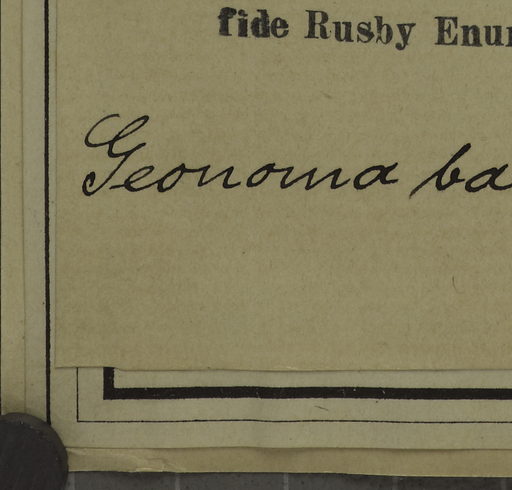 fide Rusby Enu
Geonoma ba